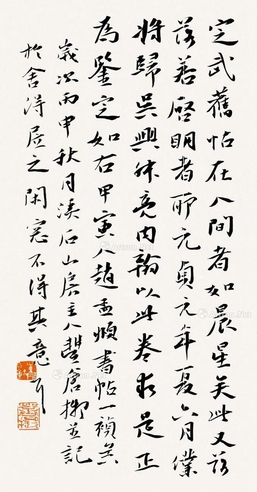 定武舊帖在人間者如晨星矣此又落
落若啓明者耶元貞元年夏六月僕
將歸吳興叔亮內翰以此卷求是正
為鑒定如右甲寅人趙孟頫書帖一禎並
歲次丙申秋月溪石山房主人 並記
於舍得居之閑窓不得其意耳